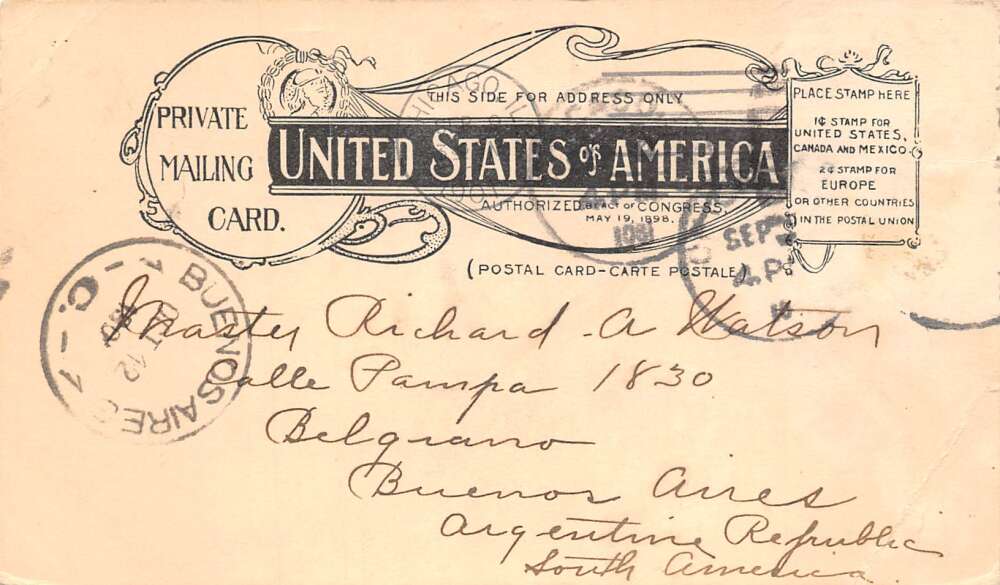 PRIVATE
MAILING
CARD.
THIS SIDE FOR ADDRESS ONLY
UNITED STATES OF AMERICA
AUTHORIZED BY ACT OF CONGRESS,
MAY 19, 1898.
(POSTAL CARD-CARTE POSTALE)
PLACE STAMP HERE
1¢ STAMP FOR
UNITED STATES,
CANADA AND MEXICO.
2¢ STAMP FOR
EUROPE
OR OTHER COUNTRIES
IN THE POSTAL UNION
CHICAGO
1901
1901
SEP
BUENOS AIRES
12
Master Richard A Watson
Calle Pampa 1830
Belgrano
Buenos Aires
Argentine Republic
South America